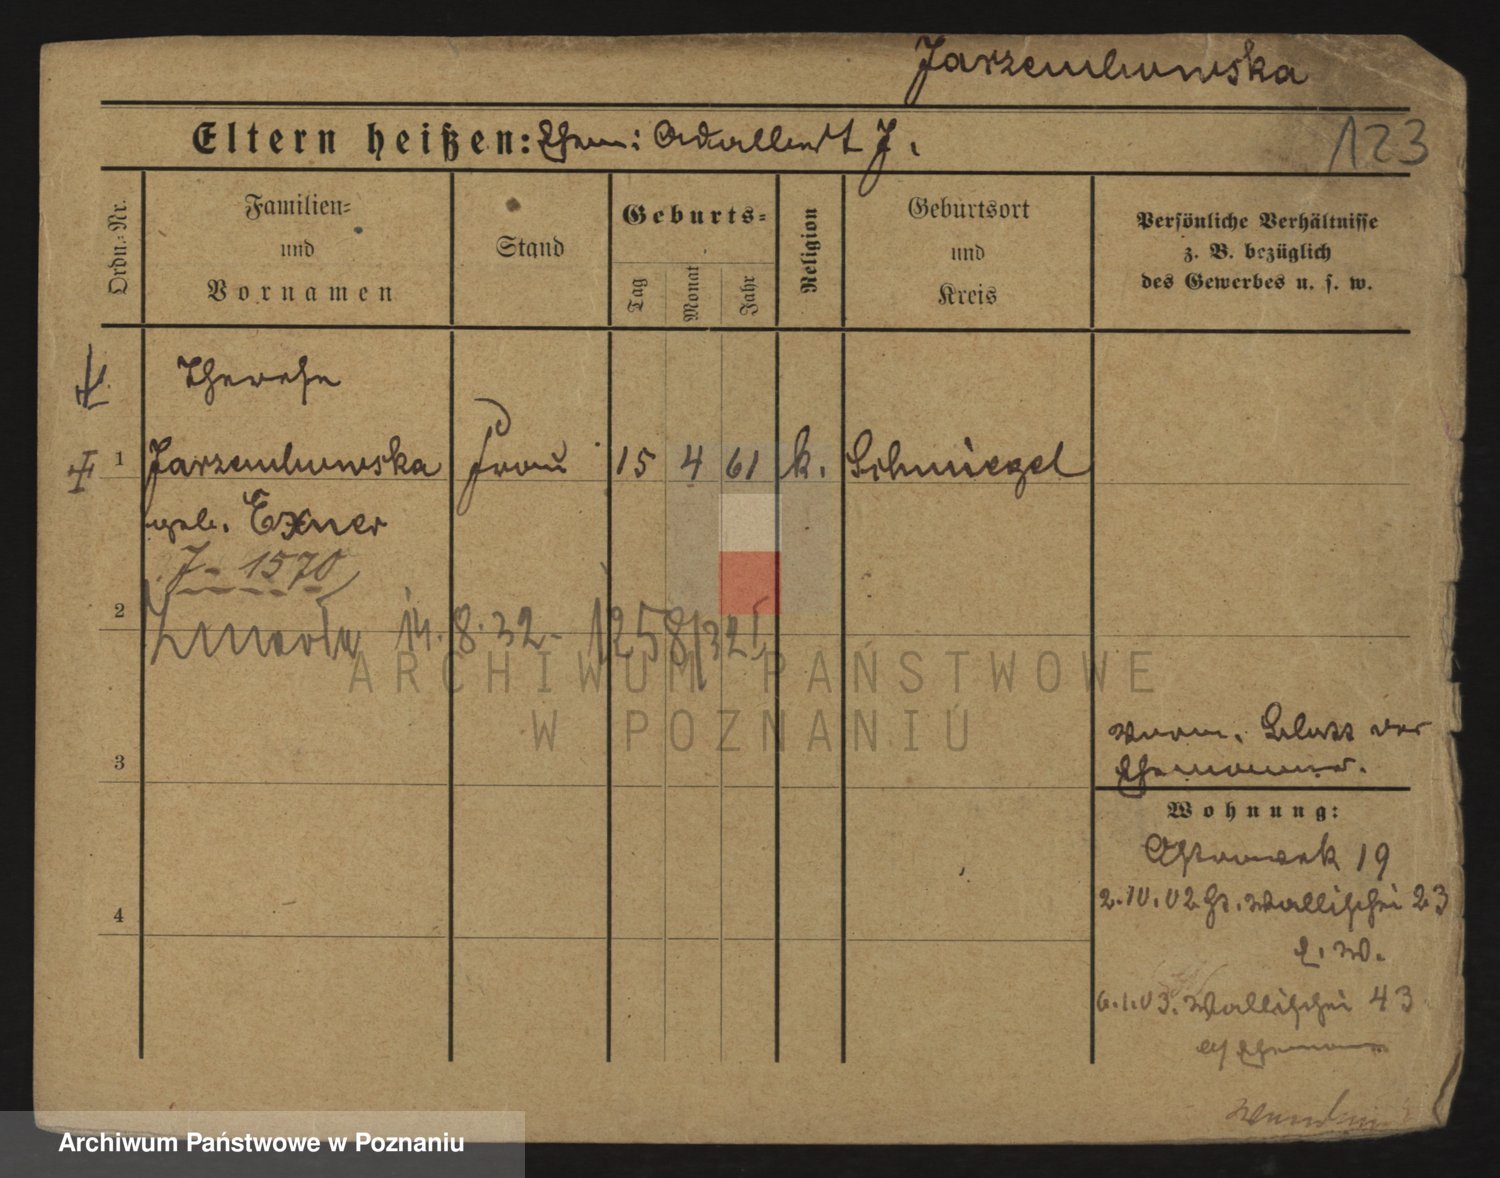 Jarzembowska
Eltern heißen: Ehem: Adalbert J.
123
Ordn.-Nr.
Familien-
und
Vornamen
Stand
Geburts-
Tag
Monat
Jahr
Religion
Geburtsort
und
Kreis
Persönliche Verhältnisse
z. B. bezüglich
des Gewerbes u. s. w.
Therese
1 Jarzembowska Frau 15 4 61 k. Schmiegel
geb. Exner
J - 1570
2
zmarła 14.8.32 - 1258/32
3
4
vorm. der
Ehemann.
Wohnung:
Ostrowek 19
2.10.02 Wallischei 23
E. W.
6.1.03. Wallischei 43
Ehemann
ARCHIWUM PAŃSTWOWE
W POZNANIU
Archiwum Państwowe w Poznaniu